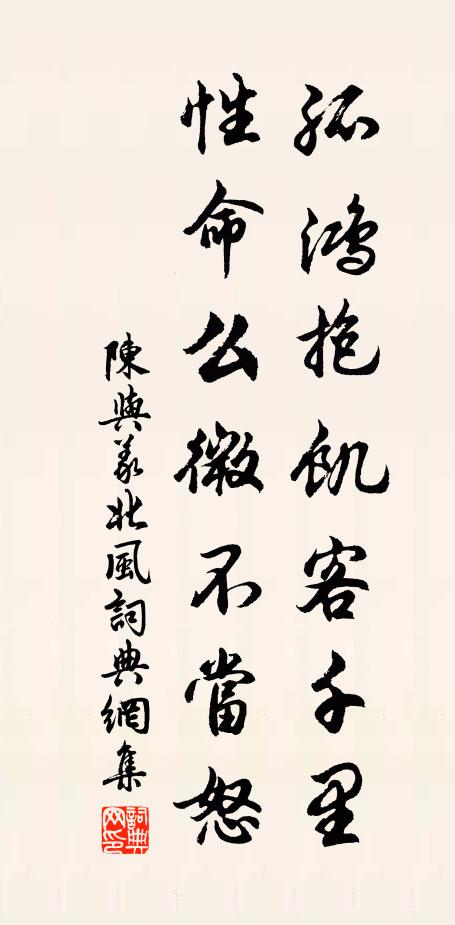 孤鴻抱飢客千里
性命么微不當怒
陳與義北風詞典網集
詞典網印